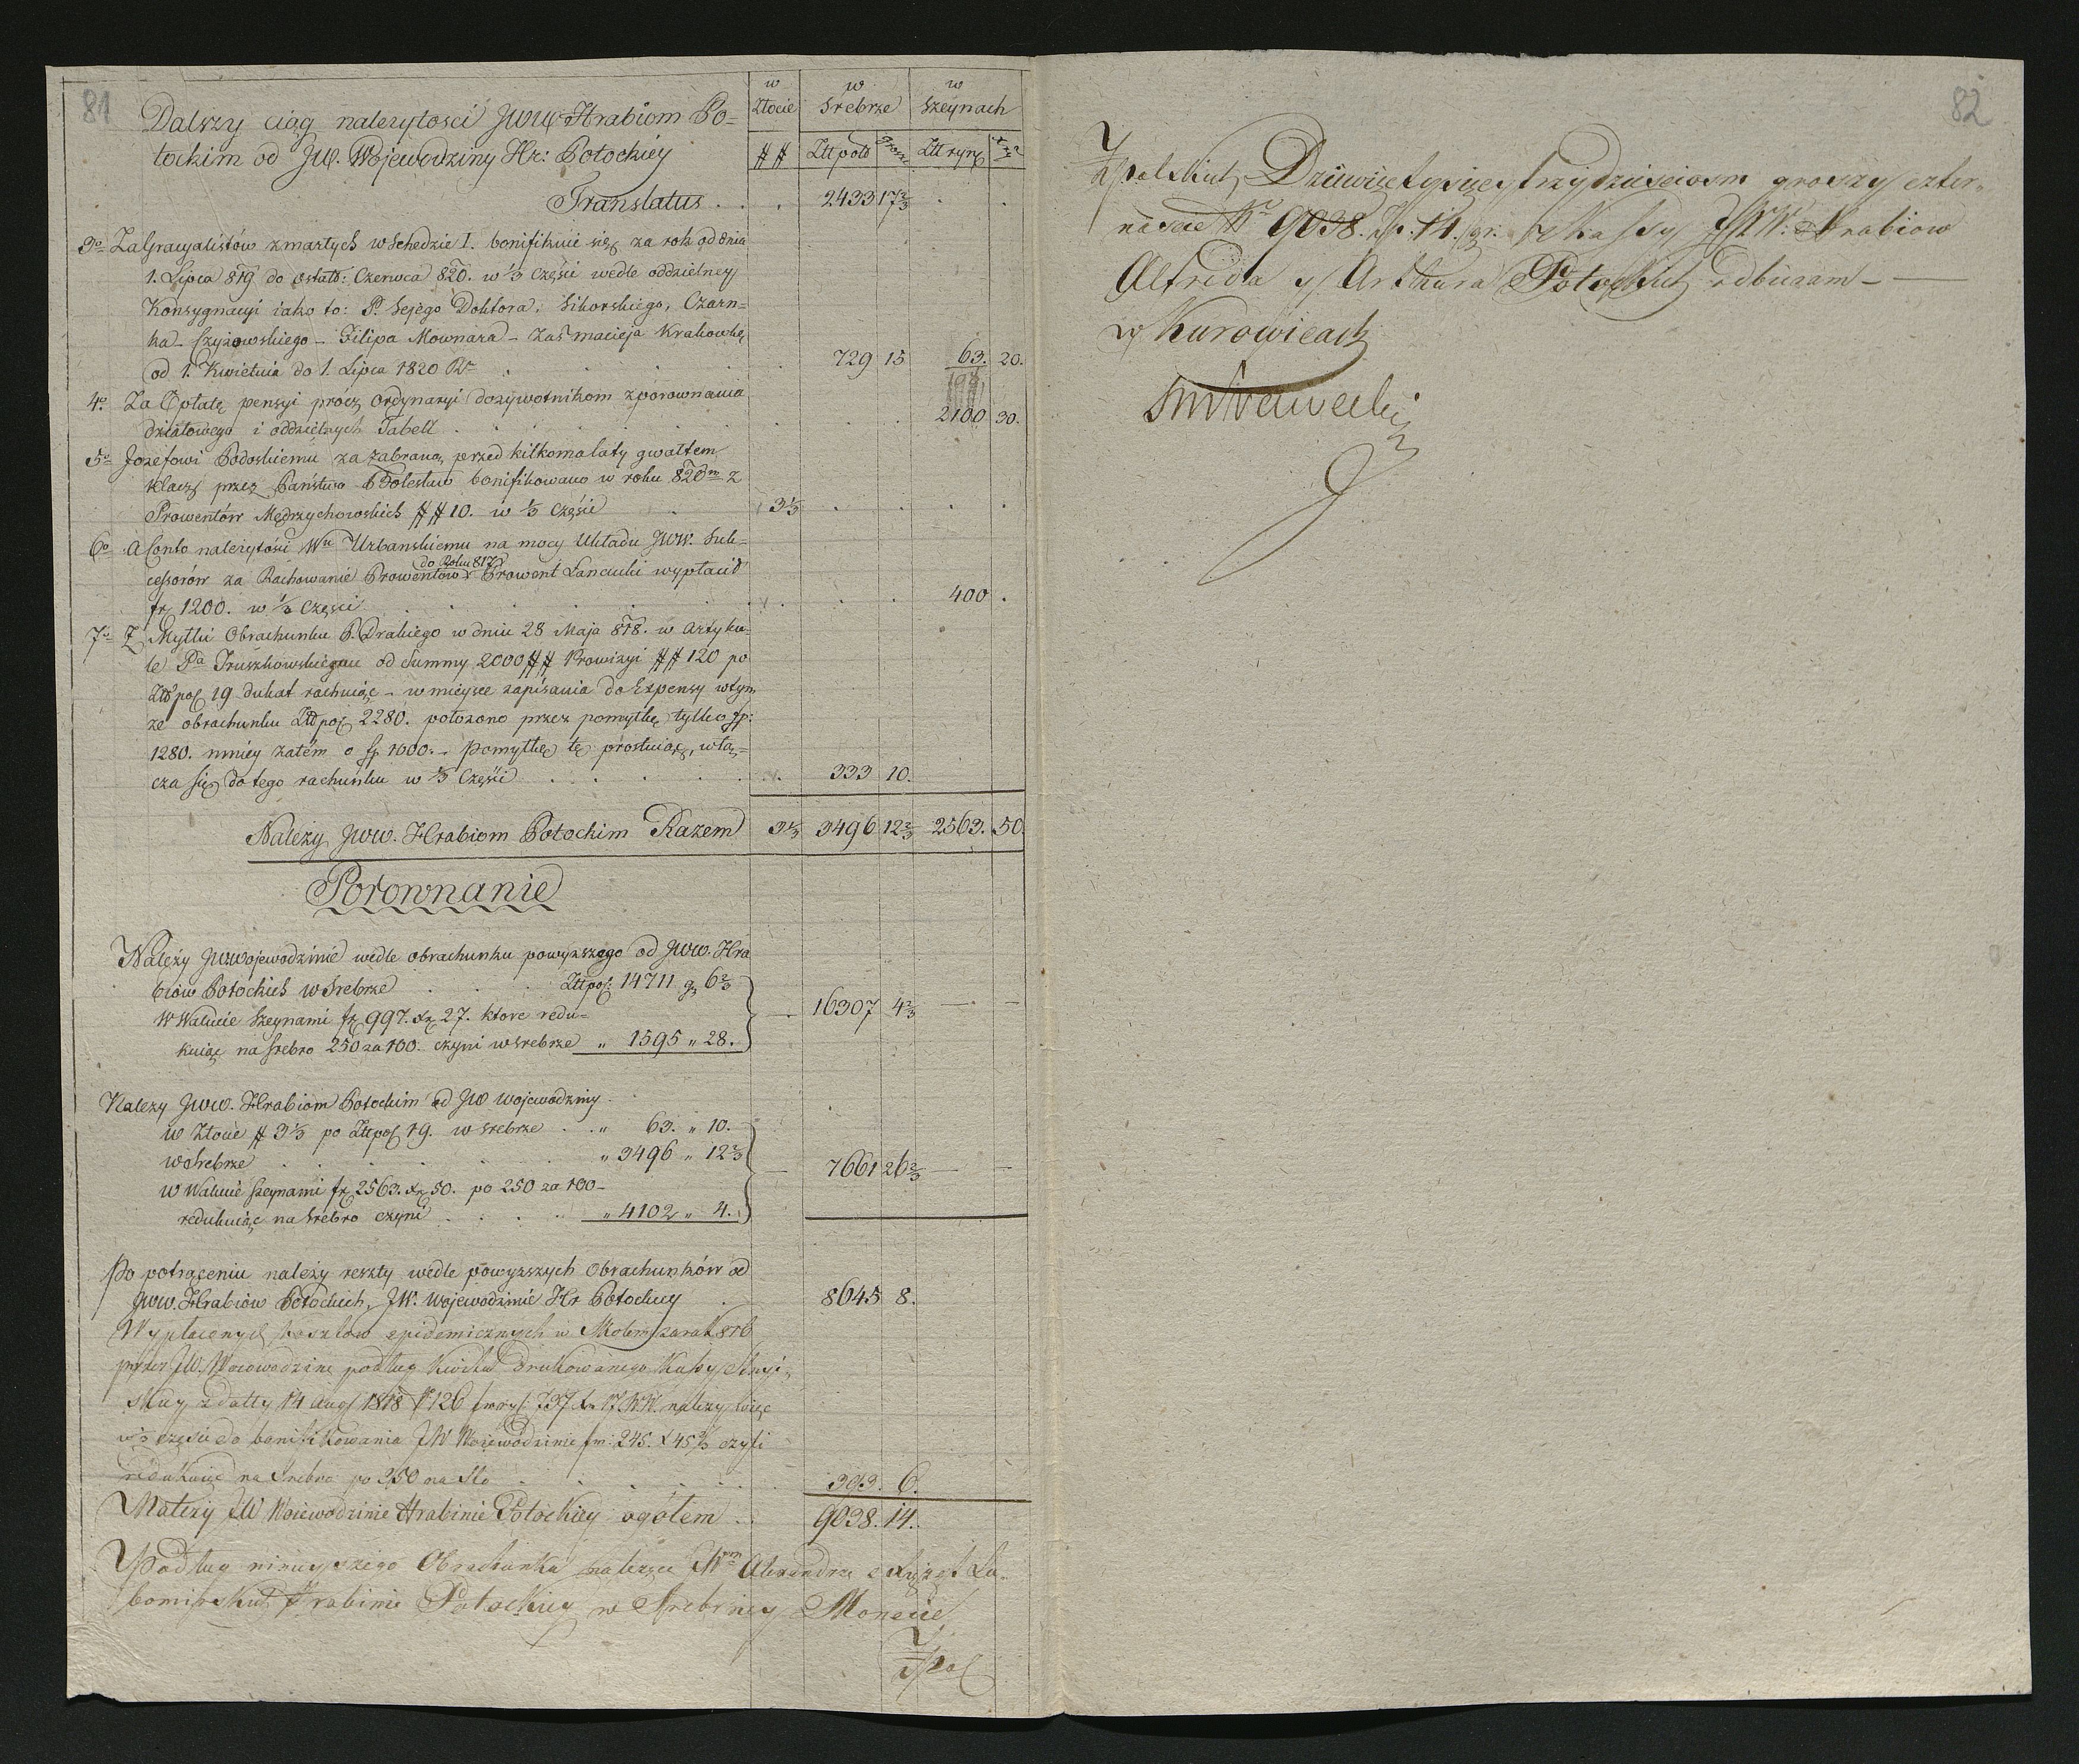 81
w Złocie w Srebrze w Szeynach
## Złt pols grosze Złt ryń xry
Dalszy ciąg należytości JWW. Hrabiom Po=
tockim od JW. Wojewodziny Hr: Potockiey
Translatus . . . 2433 17 2/3 . .
3o Za Gracyalistów zmarłych w Schedzie I. bonifikuie się za rok od dnia
1. Lipca 819 do ostatn: Czerwca 820. w 1/3 części wedle oddzielney
Konsygnacyi iako to: P. Sejego Doktora, Sikorskiego, Czarn=
ka - Szyzowskiego - Filipa Mownara - Zaś macieja Krakowkę
od 1. Kwietnia do 1. Lipca 1820 Rr . . . 729 15 63. 20.
4o Za Opłatę pensyi prócz Ordynaryi dożywotnikom z porównania
działowego i oddzielnych Tabell . . . 2100 30.
5o Jozefowi Podoskiemu za zabraną przed kilkoma laty gwałtem
Klacz przez Państwo Bolesław bonifikowano w roku 820m z
Prowentów Mędrzychowskich ## 10. w 1/3 części . 3 1/3 . . . .
6o A Conto należytości Wu Urbanskiemu na mocy Układu JWW. Suk=
do Roku 817
cessorów za Rachowanie Prowentów Prowent Łancucki wypłacił
fr 1200. w 1/3 Części . . . 400 .
7o Z Myłki Obrachunku P. Drakiego w dniu 28 Maja 818. w Artyku=
le Pa Truszkowskiego od Summy 2000 ## Prowizyi ## 120 po
Złt pol 19 dukat rachuiąc - w mieysce zapisania do Expensy w tym
że obrachunku Złt pol 2280. położono przez pomyłkę tylko fp:
1280. mniey zatém o fp 1000. - pomyłkę tę prostuiąc, włą=
cza się do tego rachunku w 1/3 Części . . . 333 10.
Należy JWW. Hrabiom Potockim Razem 3 1/3 3496 12 2/3 2563. 50.
Porownanie
Należy JWWojewodzinie wedle obrachunku powyższego od JWW. Hra
biów Potockich w Srebrze . . . Złt pol: 14711 gr 6 2/3
W Walucie Szeynami fr 997. xr 27. ktore redu= — 16307 4 2/3 — —
kuiąc na Srebro 250 za 100. czyni w Srebrze „ 1595 „ 28.
Należy JWW. Hrabiom Potockim od JW Wojewodziny
w Złocie # 3 1/3 po Złt pol 19. w Srebrze . . „ 63. „ 10.
w Srebrze . . . „ 3496 „ 12 2/3 — 7661 26 2/3 — —
w Walucie Szeynami fr 2563. xr 50. po 250 za 100 -
redukuiąc na Srebro czyni . . . „ 4102 „ 4.
Po potrąceniu należy reszty wedle powyższych Obrachunków od
JWW. Hrabiów Potockich, JW. Wojewodzinie Hr Potockiey . 8645 8.
Wypłaconych kosztow epidemicznych w za rok 816
przez JW. Woiewodzinę podług kwitu drukowanego Kassy
z datty 14 Aug 1818 No 126 737 xr 17 WW. należy więc
w 1/3 części do bonifikowania JW Woiewodzinie frn: 245. x 45 2/3 czyli
redukuiąc na Srebro po 250 na Sto . . . 393. 6.
Należy JW Woiewodzinie Hrabinie Potockiey ogołem . . 9038. 14.
Podług ninieyszego Obrachunku należące JWnm Alexandrze z Xiążąt Lu=
bomirskich Hrabinie Potockiey w Srebrney Monecie
Zł pol
82
Zł polskich Dziewięć tysięcy trzydzieści osm groszy czter=
nascie Nr 9038. Zł. 14. gr. z Kassy JWW. Hrabiow
Alfreda y Arthura Potockich odbieram -
w Kurowicach